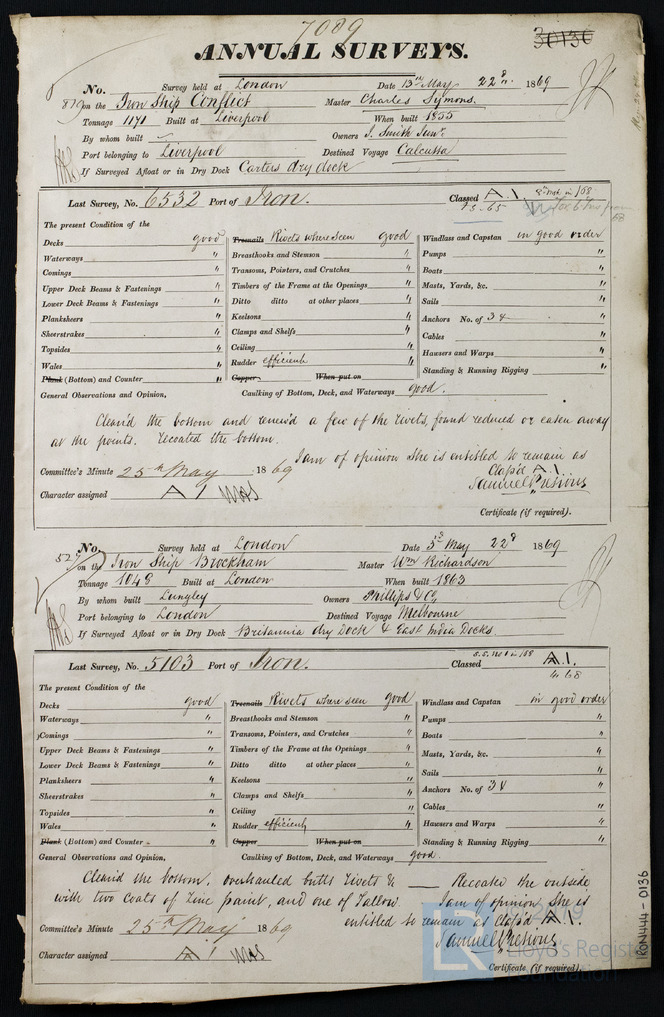 7089
ANNUAL SURVEYS. 30136
No. Survey held at London Date 13th May 22d 1869
879 on the Iron Ship Conflict Master Charles Symons.
Tonnage 1171 Built at Liverpool When built 1855
By whom built Owners J. Smith Junr
Port belonging to Liverpool Destined Voyage Calcutta
If Surveyed Afloat or in Dry Dock Carters dry dock
Last Survey, No. 6532 Port of Iron. Classed A.1.
The present Condition of the
Decks good Treenails Rivets where seen good Windlass and Capstan in good order
Waterways " Breasthooks and Stemson " Pumps "
Comings " Transoms, Pointers, and Crutches " Boats "
Upper Deck Beams & Fastenings " Timbers of the Frame at the Openings " Masts, Yards, &c. "
Lower Deck Beams & Fastenings " Ditto ditto at other places " Sails "
Planksheers " Keelsons " Anchors No. of 34 "
Sheerstrakes " Clamps and Shelfs " Cables "
Topsides " Ceiling " Hausers and Warps "
Wales " Rudder efficient " Standing & Running Rigging "
Plank (Bottom) and Counter " Copper When put on
General Observations and Opinion, Caulking of Bottom, Deck, and Waterways good.
Clean'd the bottom and renew'd a few of the rivets, found reduced or eaten away
at the points. recoated the bottom.
I am of opinion she is entitled to remain as
Class'd A.1.
Committee's Minute 25th May 1869
Character assigned A 1
Certificate (if required).
No. Survey held at London Date 5th May 22d 1869
527 on the Iron Ship Brockham Master Wm Richardson
Tonnage 1048 Built at London When built 1863
By whom built Lungley Owners Phillips & Co
Port belonging to London Destined Voyage Melbourne
If Surveyed Afloat or in Dry Dock Britannia dry Dock & East India Docks.
Last Survey, No. 5103 Port of Iron. Classed A.1.
4. 68
The present Condition of the
Decks good Treenails Rivets where seen good Windlass and Capstan in good order
Waterways " Breasthooks and Stemson " Pumps "
Comings " Transoms, Pointers, and Crutches " Boats "
Upper Deck Beams & Fastenings " Timbers of the Frame at the Openings " Masts, Yards, &c. "
Lower Deck Beams & Fastenings " Ditto ditto at other places " Sails "
Planksheers " Keelsons " Anchors No. of 34 "
Sheerstrakes " Clamps and Shelfs " Cables "
Topsides " Ceiling " Hausers and Warps "
Wales " Rudder efficient " Standing & Running Rigging "
Plank (Bottom) and Counter " Copper When put on
General Observations and Opinion, Caulking of Bottom, Deck, and Waterways good
Clean'd the bottom, overhauled butts rivets & — Recoated the outside
with two Coats of Zinc paint, and one of Tallow. I am of opinion she is
entitled to remain as Class'd A.1.
Committee's Minute 25th May 1869
Character assigned A 1
Certificate (if required).
LR Lloyd's Register
Foundation
IRON444-0136